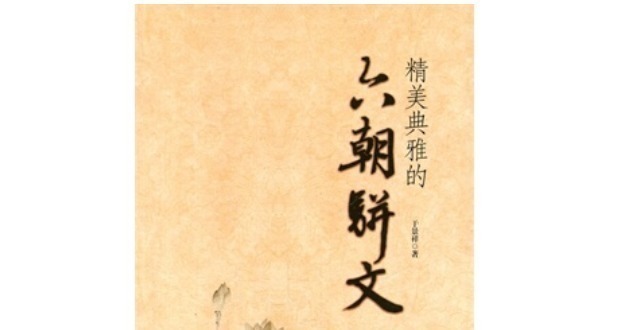 精美典雅的
六朝駢文
于景祥○著